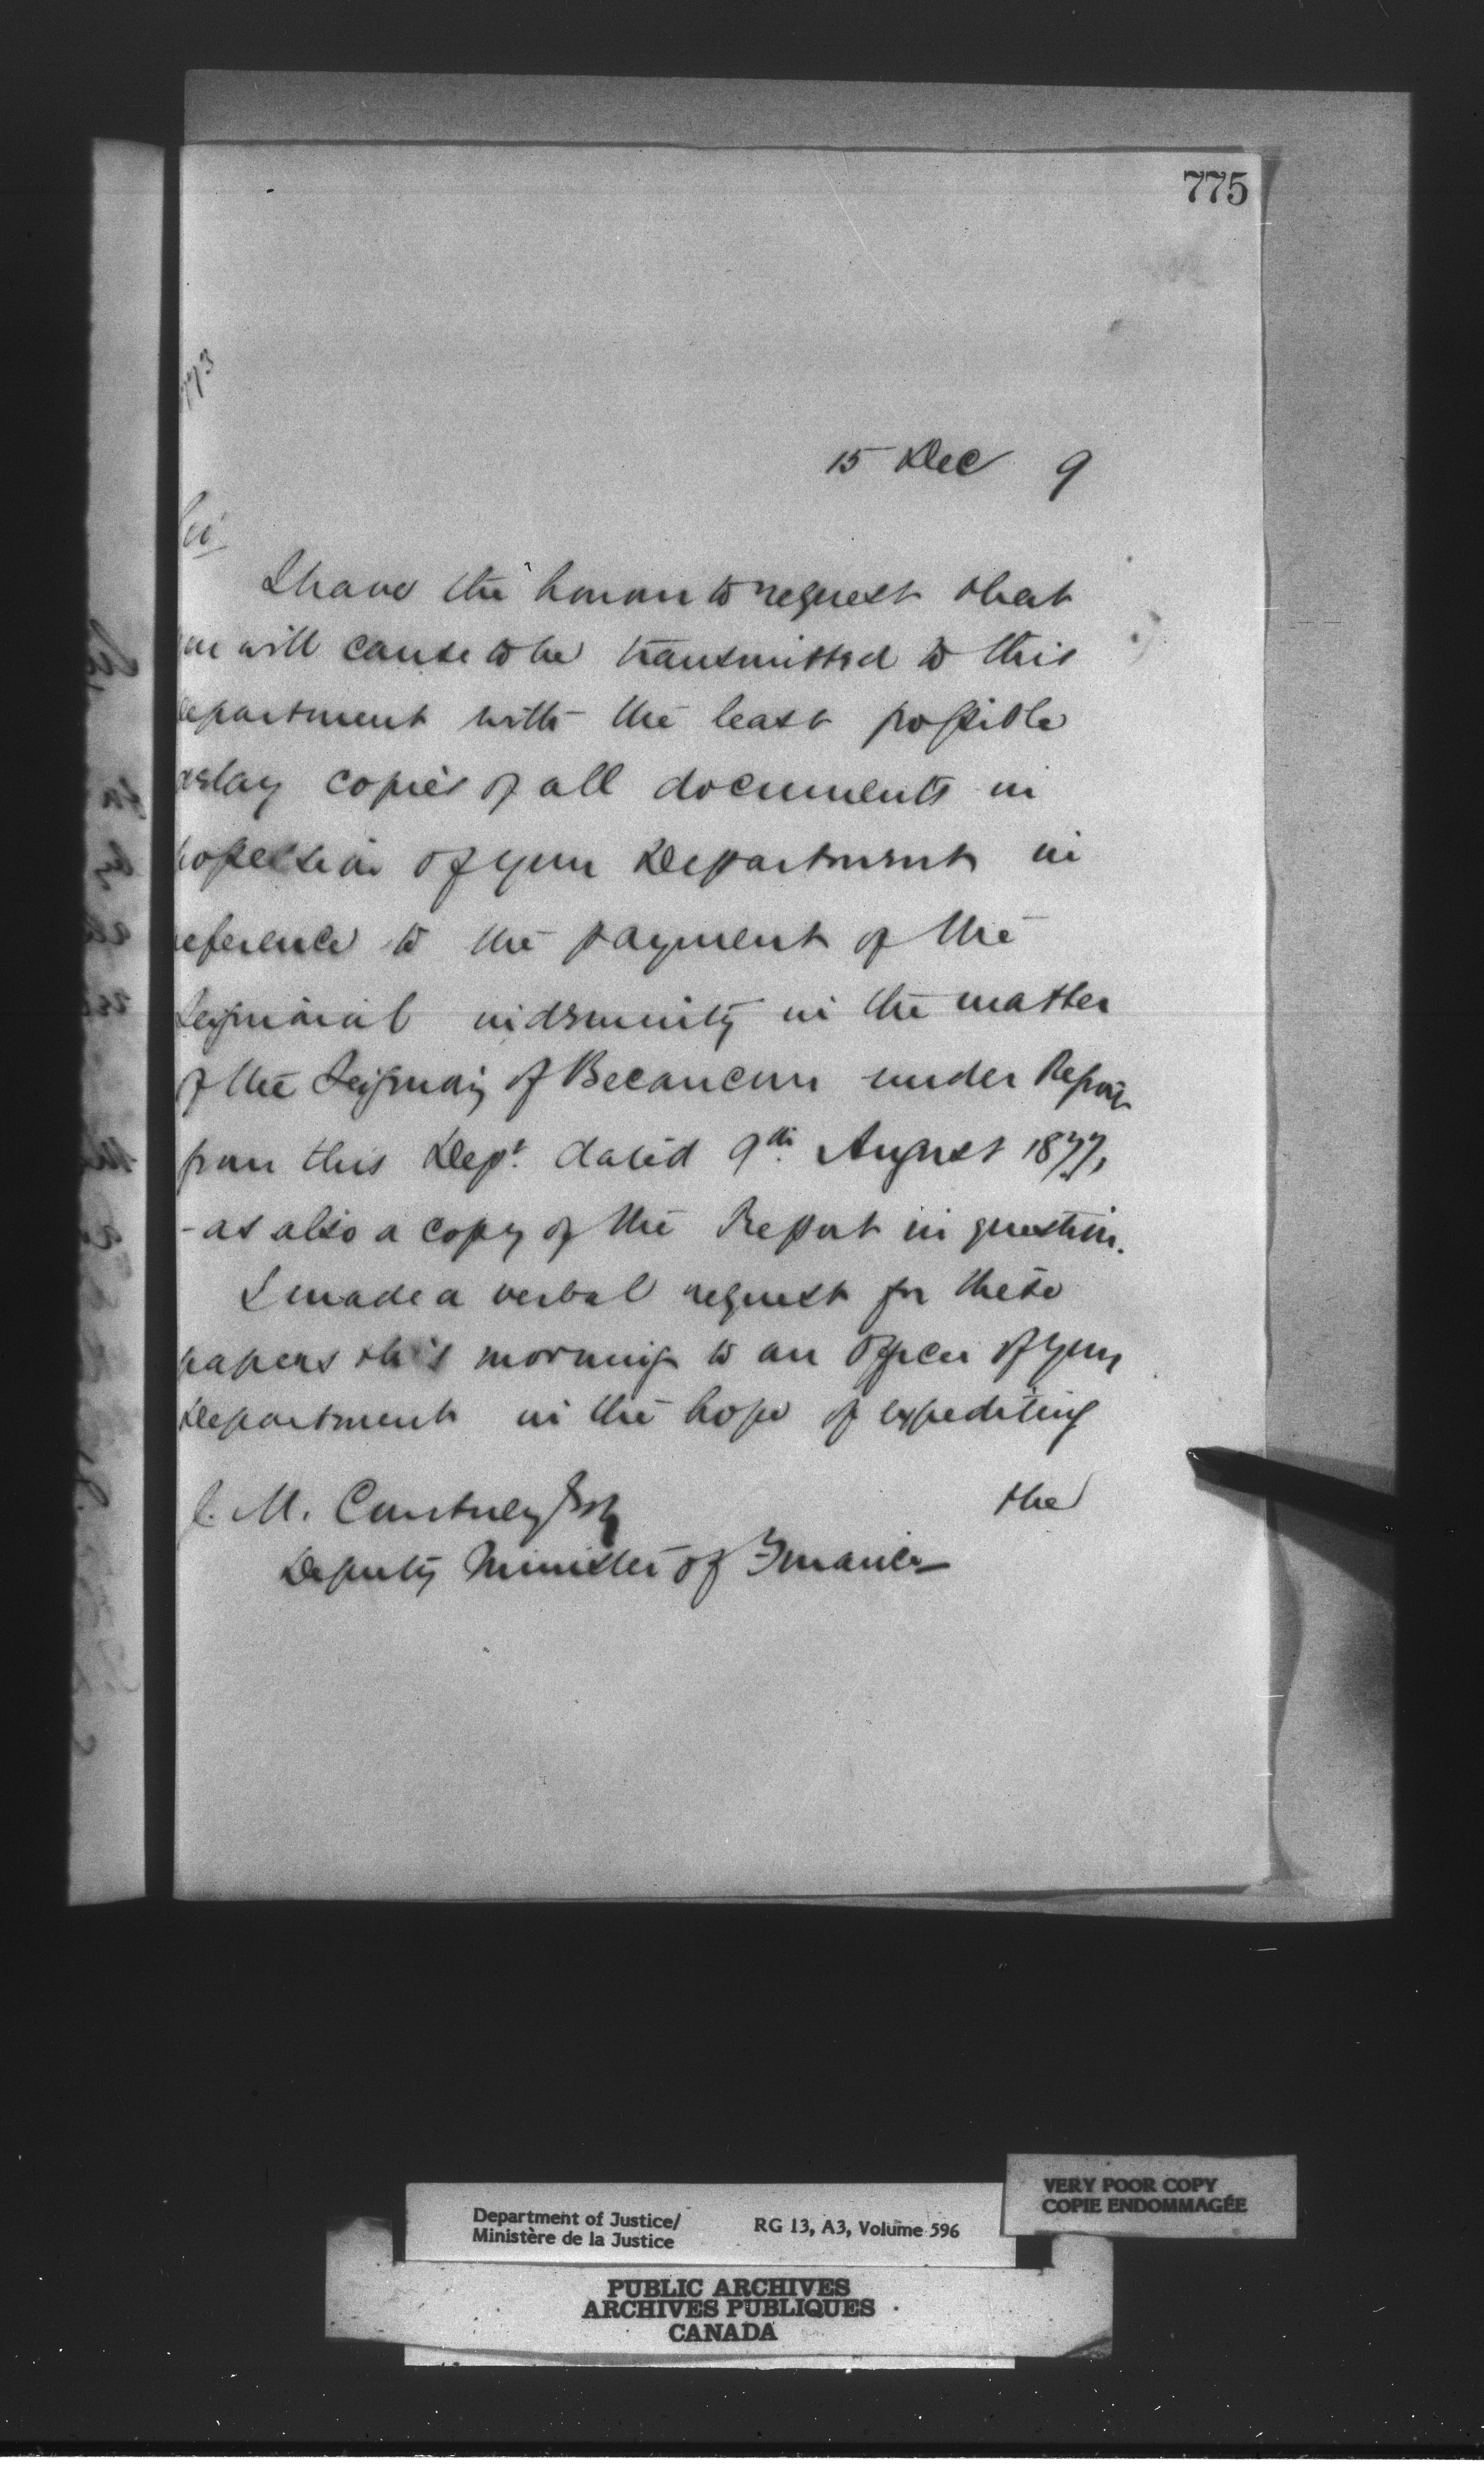 775
773
15 Dec 9
Sir
I have the honour to request that
you will cause to be transmitted to this
Department with the least possible
delay copies of all documents in
possession of your Department in
reference to the payment of the
Seignorial indemnity in the matter
of the Seignory of Becancour under Report
from this Dept. dated 9th August 1877,
- as also a copy of the Report in question.
I made a verbal request for these
papers this morning to an Officer of your
Department in the hope of expediting
the
J. M. Courtney Esq
Deputy Minister of Finance
VERY POOR COPY
COPIE ENDOMMAGÉE
Department of Justice/ RG 13, A3, Volume 596
Ministère de la Justice
PUBLIC ARCHIVES
ARCHIVES PUBLIQUES
CANADA